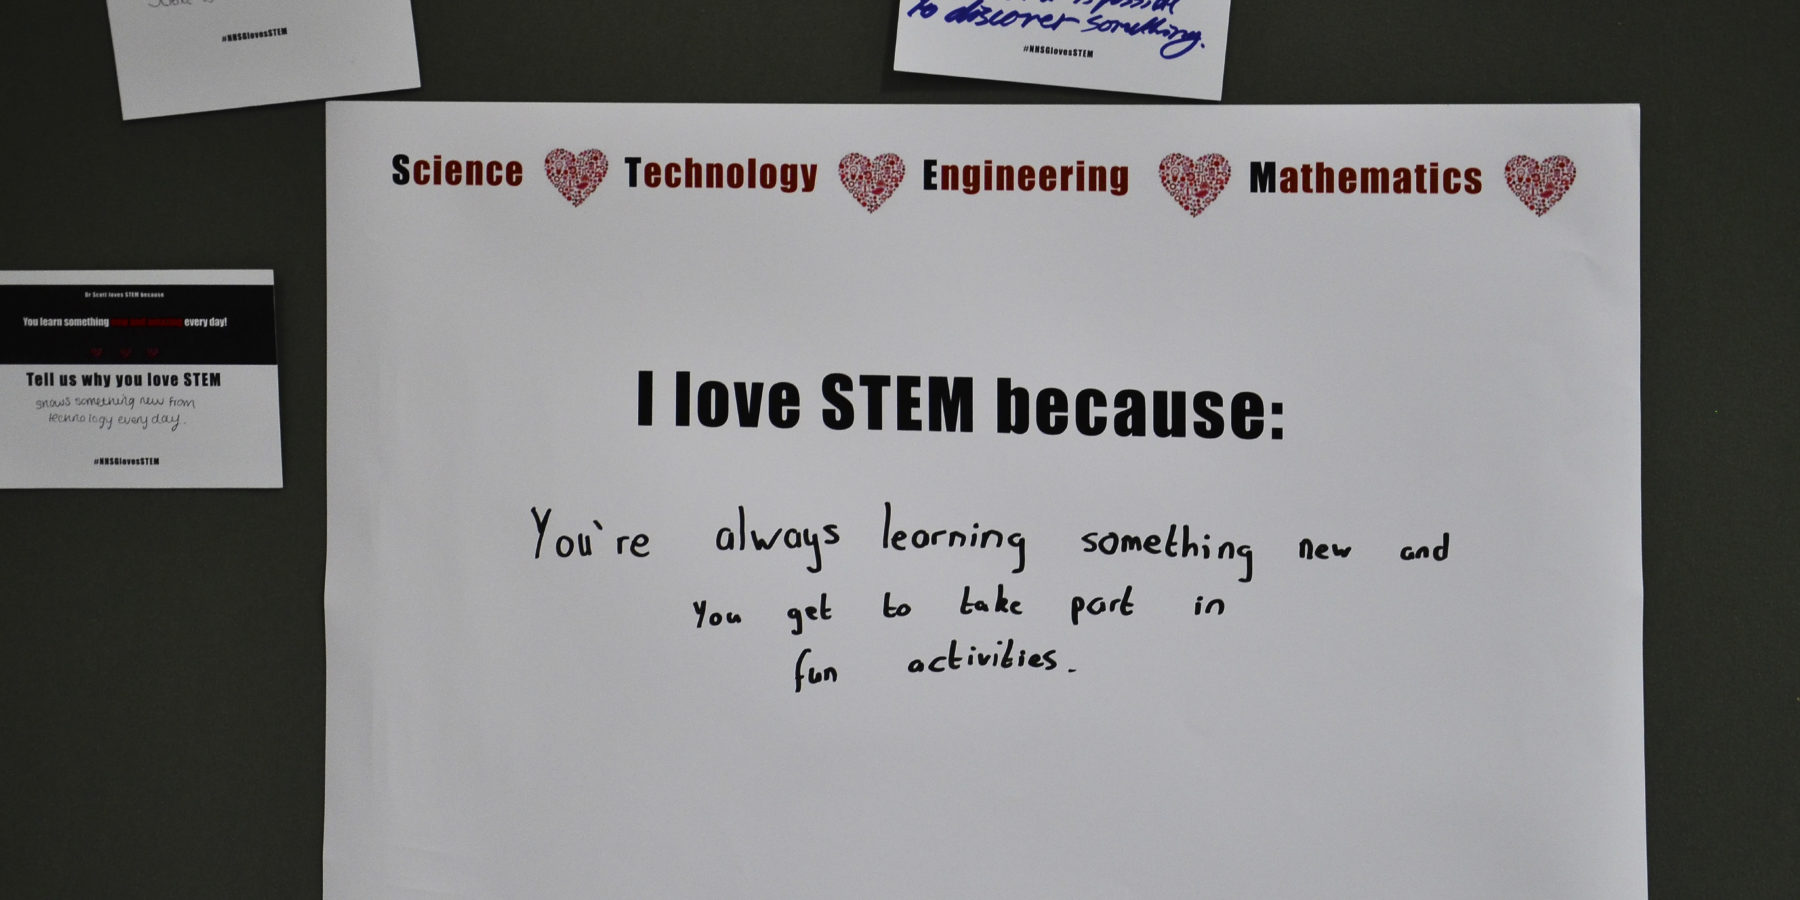 #NHSGlovesSTEM
to discover something.
#NHSGlovesSTEM
Science Technology Engineering Mathematics
I love STEM because:
You're always learning something new and
you get to take part in
fun activities.
Dr Scott loves STEM because
You learn something new and amazing every day!
Tell us why you love STEM
shows something new from
technology every day.
#NHSGlovesSTEM